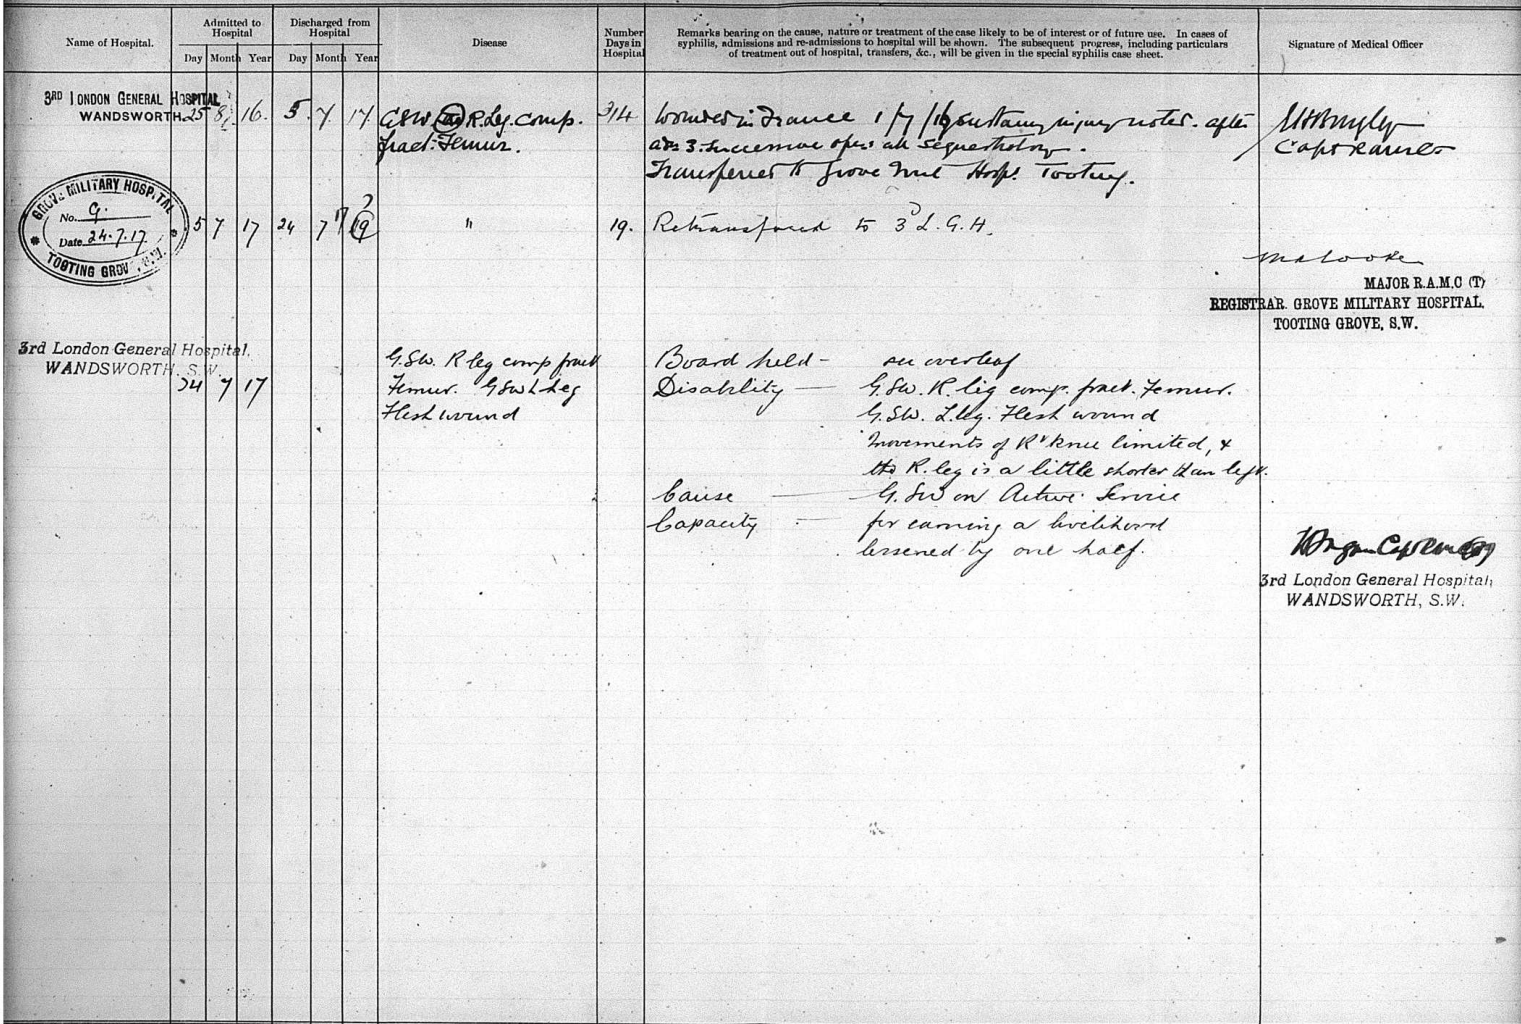 Name of Hospital.
Admitted to
Hospital
Discharged from
Hospital
Day Month Year Day Month Year
Disease
Number
Days in
Hospital
Remarks bearing on the cause, nature or treatment of the case likely to be of interest or of future use. In cases of
syphilis, admissions and re-admissions to hospital will be shown. The subsequent progress, including particulars
of treatment out of hospital, transfers, &c., will be given in the special syphilis case sheet.
Signature of Medical Officer
3RD LONDON GENERAL HOSPITAL
WANDSWORTH.
25 8 16. 5 7 17
GSW R. Leg. Comp.
fract. Femur.
314
Wounded in France 1/7/16 sustaining injury noted. after
3 successive
Transferred to Grove Mil Hosp. Tooting.
Capt RAMC
GROVE MILITARY HOSPITAL
No. 9.
Date 24.7.17
TOOTING GROVE, S.W.
5 7 17 24 7 17 19
"
19.
Retransferred to 3 L.G.H.
MAJOR R.A.M.C (T)
REGISTRAR. GROVE MILITARY HOSPITAL.
TOOTING GROVE, S.W.
3rd London General Hospital,
WANDSWORTH, S.W.
24 7 17
G.S.W. R leg comp fract
Femur. GSW L Leg
Flesh wound
Board held - see overleaf
Disability — G.S.W. R. leg comp. fract. Femur.
G.S.W. L. leg. Flesh wound
Movements of Rt knee limited, &
the R. leg is a little shorter than left.
Cause — G.SW on Active Service
Capacity — for earning a livelihood
lessened by one half.
3rd London General Hospital,
WANDSWORTH, S.W.